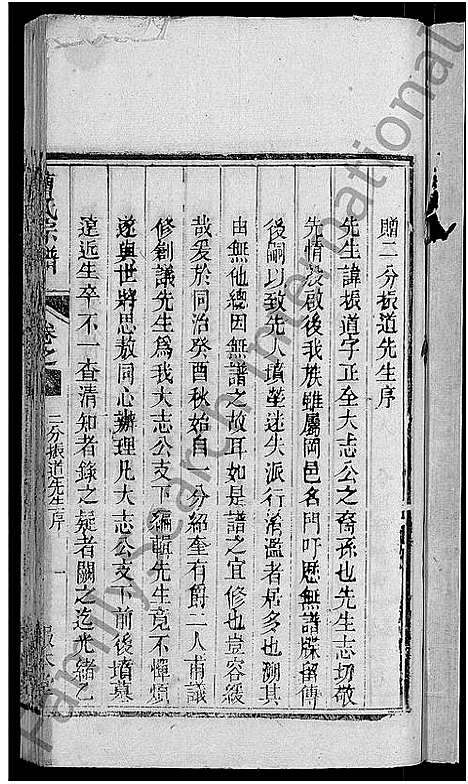 贈二分振道先生序
先生諱振道字正至大志公之裔孫也先生志切敬
先情殷啟後我族雖屬岡邑名門吁歷無譜牒留傳
後嗣以致先人墳塋迷失派行淆濫者居多也溯其
由無他總因無譜之故耳如是譜之宜修也豈容緩
哉爰於同治癸酉秋始自一分紹奎有爵二人甫議
修創議先生為我大志公支下編輯先生竟不憚煩
遂與世將思敖同心辦理凡大志公支下前後墳墓
遠近生卒不一查清知者錄之疑者闕之迄光緒乙
氏宗譜
卷之
二分振道先生序
一
FamilySearch International